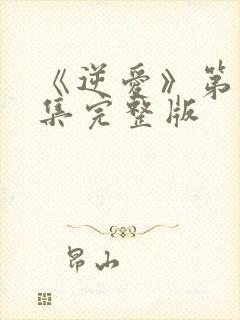 《逆爱》第
集完整版
昂山